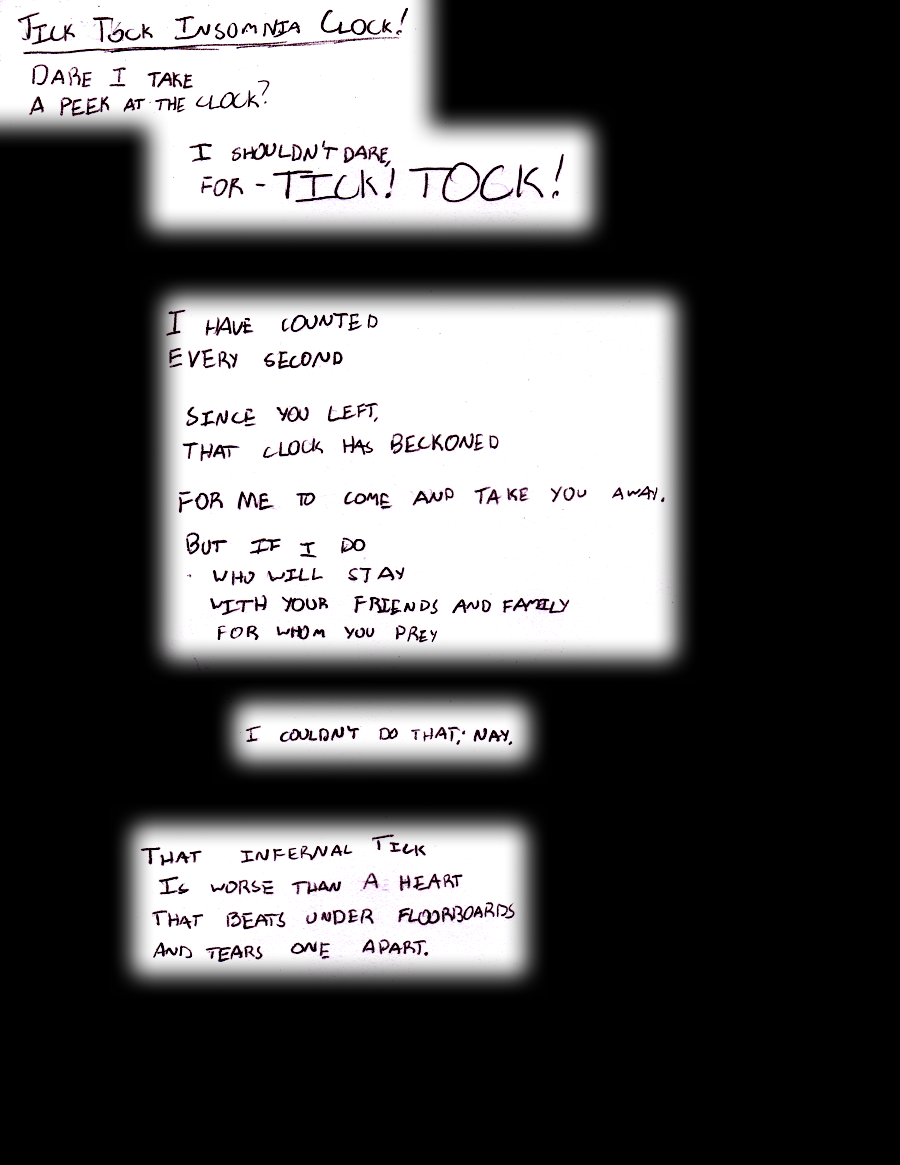 TICK TOCK INSOMNIA CLOCK!
DARE I TAKE
A PEEK AT THE CLOCK?
I SHOULDN'T DARE,
FOR - TICK! TOCK!
I HAVE COUNTED
EVERY SECOND
SINCE YOU LEFT,
THAT CLOCK HAS BECKONED
FOR ME TO COME AND TAKE YOU AWAY.
BUT IF I DO
WHO WILL STAY
WITH YOUR FRIENDS AND FAMILY
FOR WHOM YOU PREY
I COULDN'T DO THAT, NAY.
THAT INFERNAL TICK
IS WORSE THAN A HEART
THAT BEATS UNDER FLOORBOARDS
AND TEARS ONE APART.